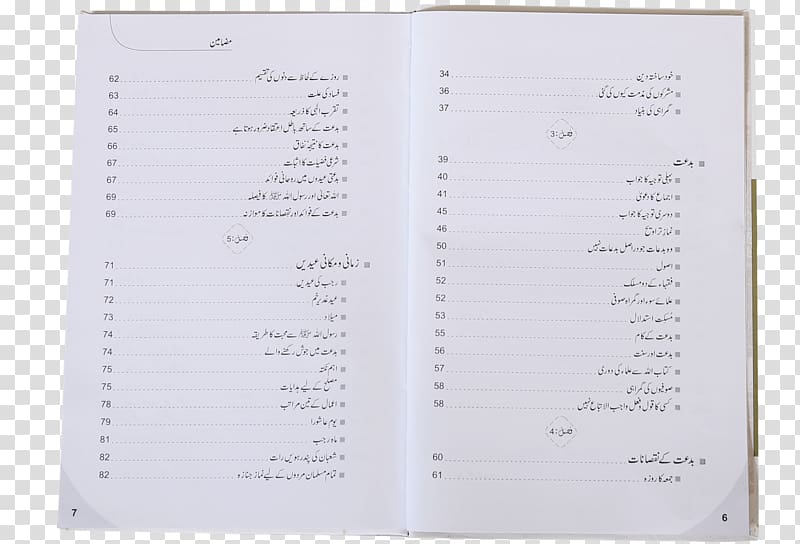 خود ساختہ دین 34
مشرکوں کی مذمت کیوں کی گئی 36
گمراہی کی بنیاد 37
فصل: 3
بدعت 39
پہلی توجیہ کا جواب 40
اجماع کا دعویٰ 41
دوسری توجیہ کا جواب 45
نماز تراویح 46
وہ بدعات جو دراصل بدعات نہیں 50
اصول 51
فقہاء کے دو مسلک 52
علمائے سوء اور گمراہ صوفی 52
مسکت استدلال 53
بدعت کے کام 55
بدعت اور سنت 56
کتاب اللہ سے علماء کی دوری 57
صوفیوں کی گمراہی 58
کسی کا قول و فعل واجب الاتباع نہیں 58
فصل: 4
بدعت کے نقصانات 60
جمعہ کا روزہ 61
6
مضامین
روزے کے لحاظ سے دنوں کی تقسیم 62
فساد کی علت 63
تقرب الٰہی کا ذریعہ 64
بدعت کے ساتھ باطل اعتقاد ضرور ہوتا ہے 65
بدعت کا نتیجۂ نفاق 66
شرعی فضیلت کا اثبات 67
بدعتی عیدوں میں روحانی فوائد 67
اللہ تعالیٰ اور رسول اللہ ﷺ کا فیصلہ 69
بدعت کے فوائد اور نقصانات کا موازنہ 69
فصل: 5
زمانی و مکانی عیدیں 71
رجب کی عیدیں 71
عید غدیر خم 72
میلاد 73
رسول اللہ ﷺ سے محبت کا طریقہ 74
بدعت میں جوش رکھنے والے 74
اہم نکتہ 75
مصلح کے لیے ہدایات 75
اعمال کے تین مراتب 78
یوم عاشورا 79
ماہ رجب 81
شعبان کی پندرہویں رات 82
تمام مسلمان مردوں کے لیے نماز جنازہ 82
7